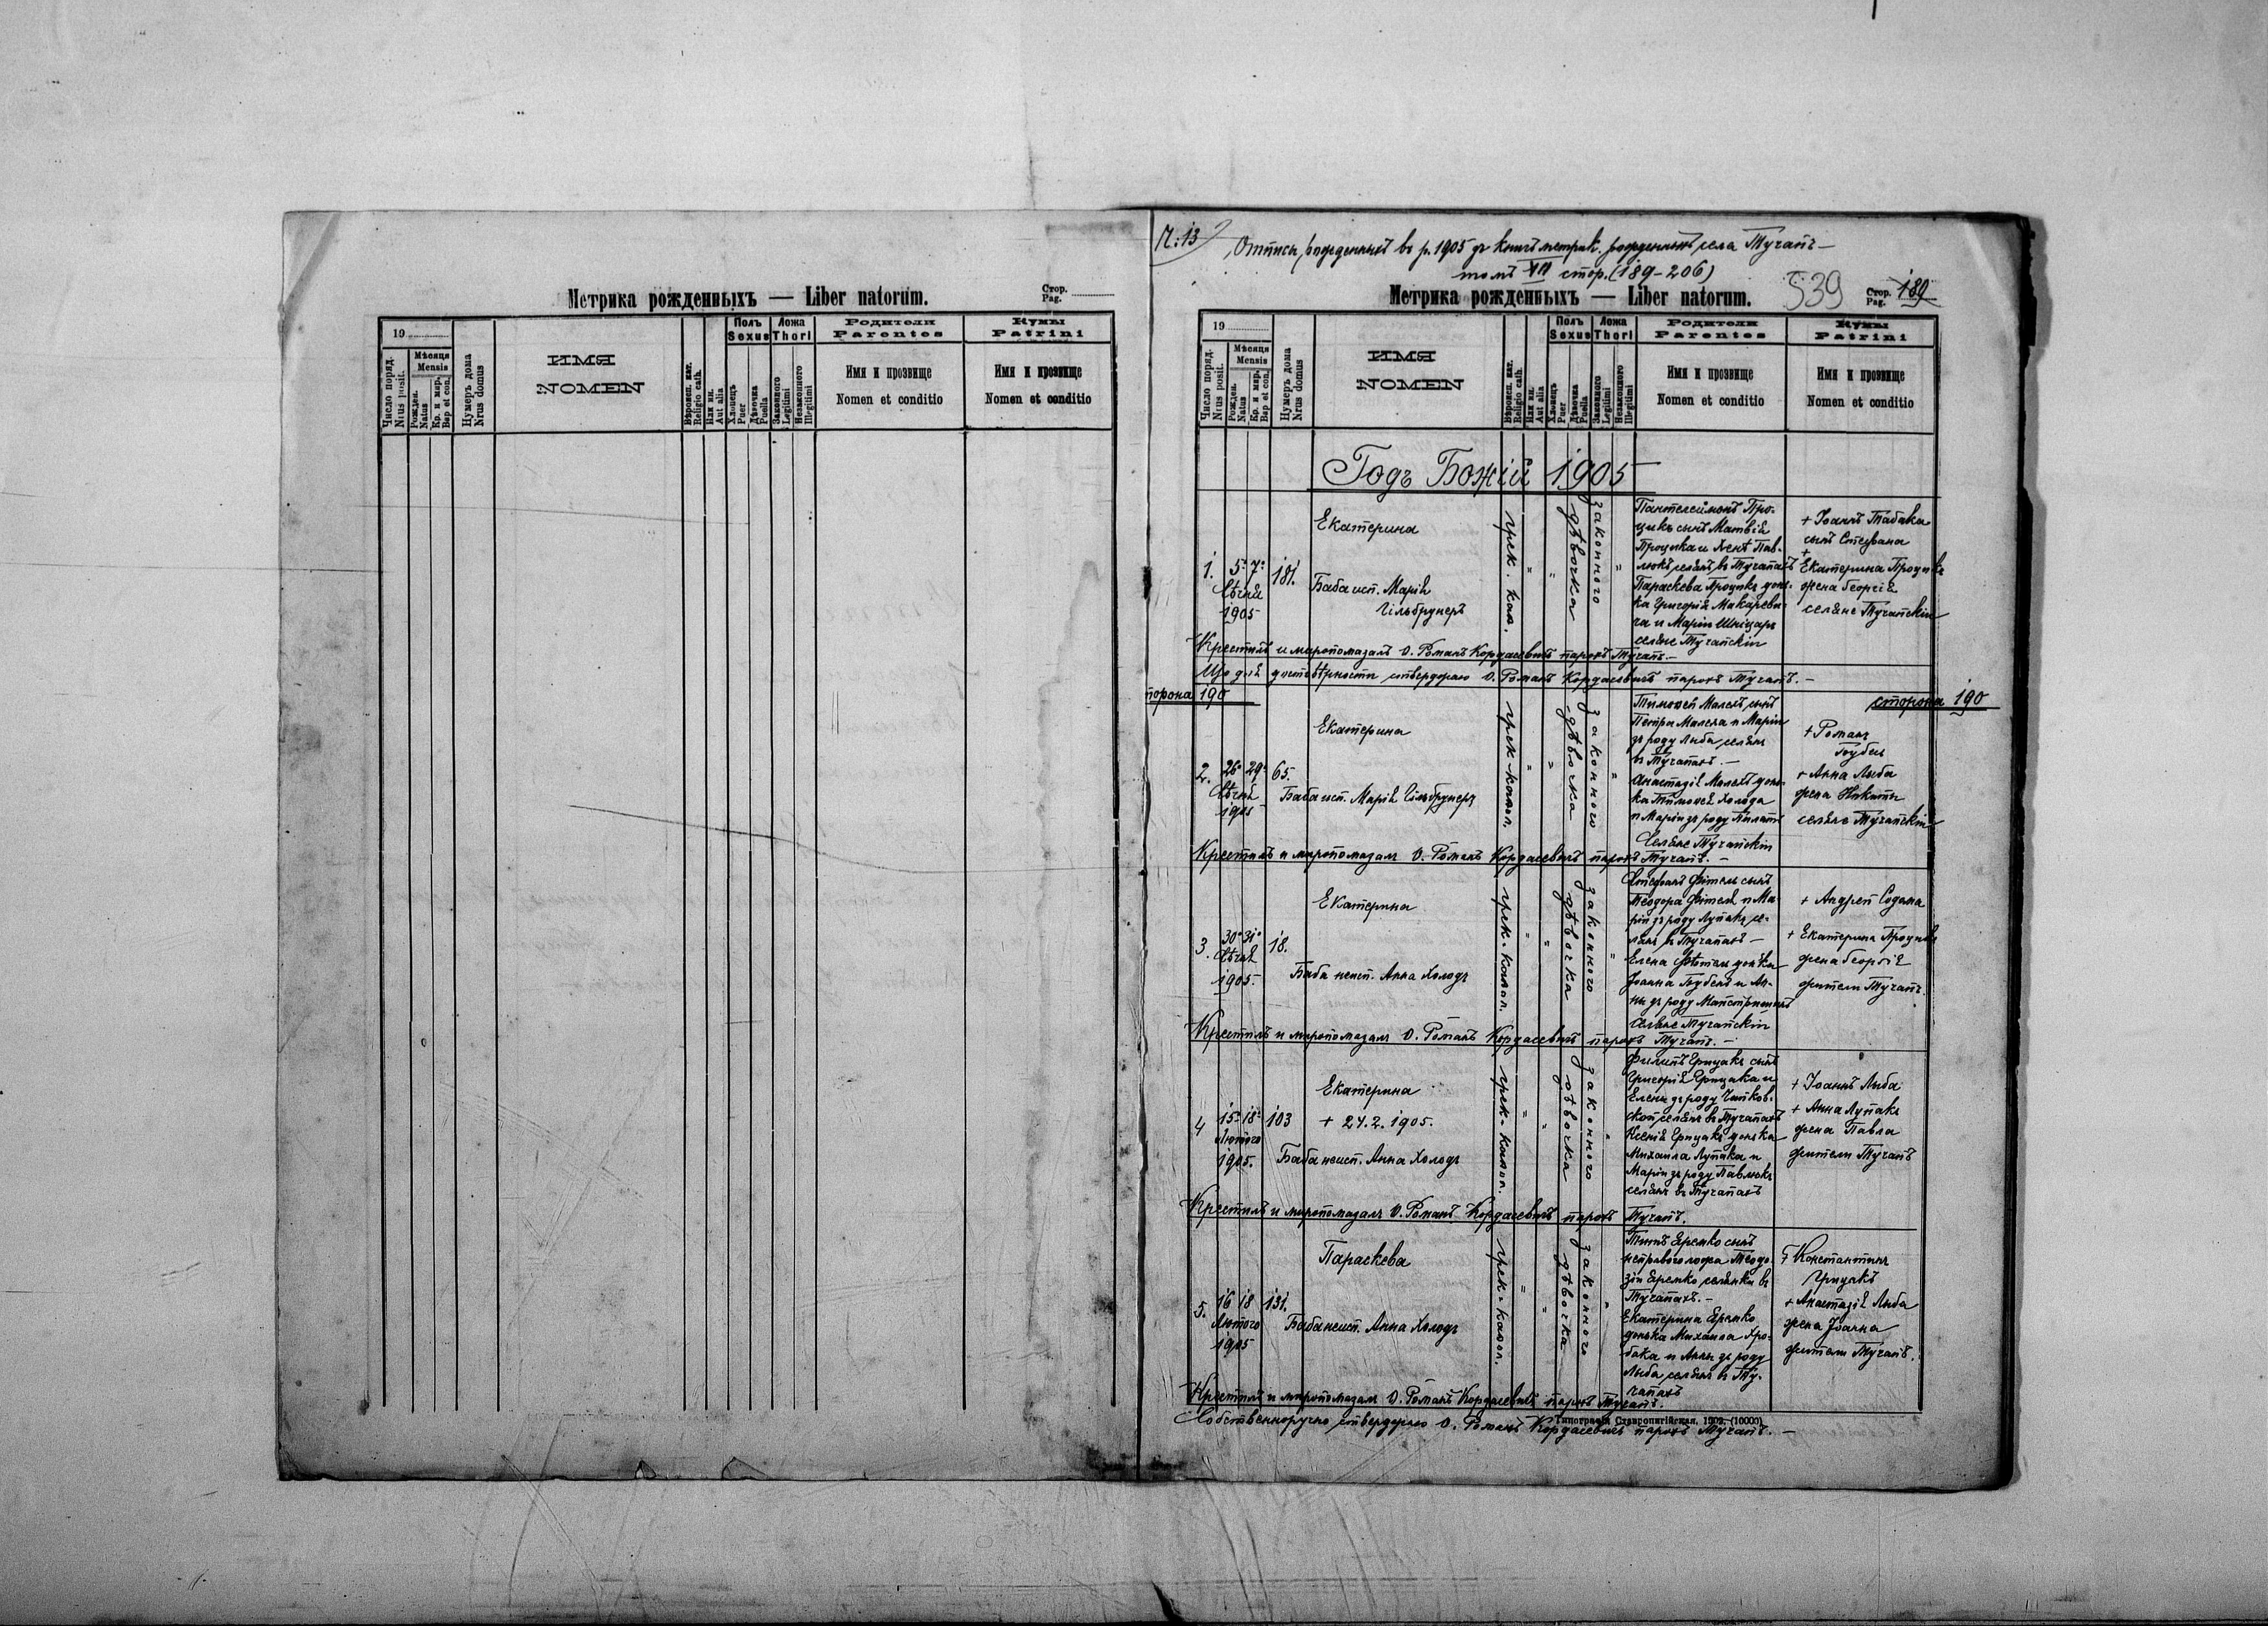 Метрика рожденныхъ — Liber natorum.
Стор.
Pag.
19
Число поряд.
Nrus posit.
Мѣсяця
Mensis
Рожден.
Natus
Кр. и мир.
Bap et con.
Нумеръ дома
Nrus domus
ИМЯ
NOMEN
Вѣроисп. кат.
Religio cath.
Или ин.
Aut alia
Полъ
Sexus
Хлопецъ
Puer
Дѣвочка
Puella
Ложа
Thori
Законного
Legitimi
Незаконного
Illegitimi
Родители
Parentes
Имя и прозвище
Nomen et conditio
Кумы
Patrini
Имя и прозвище
Nomen et conditio
Ч: 13
Отписъ рожденныхъ въ р. 1905 зъ книгъ метрик. рожденныхъ села Тучапъ —
томъ VII стор. (189-206)
Метрика рожденныхъ — Liber natorum.
539
Стор.
Pag.
189
19
Число поряд.
Nrus posit.
Мѣсяця
Mensis
Рожден.
Natus
Кр. и мир.
Bap et con.
Нумеръ дома
Nrus domus
ИМЯ
NOMEN
Вѣроисп. кат.
Religio cath.
Или ин.
Aut alia
Полъ
Sexus
Хлопецъ
Puer
Дѣвочка
Puella
Ложа
Thori
Законного
Legitimi
Незаконного
Illegitimi
Родители
Parentes
Имя и прозвище
Nomen et conditio
Кумы
Patrini
Имя и прозвище
Nomen et conditio
Годъ Божій 1905
1. 5. 7. 181.
Сѣчня
1905
Екатерина
Баба исп. Марія
Гільбрунеръ
грек. кат.
дѣвочка
законного
Пантелеймонъ Про-
цикъ сынъ Матвія
Процика и Ксенѣ Пав-
люкъ селянъ въ Тучапахъ
Параскева Процикъ донь-
ка Григорія Макареви-
ча и Маріи Шніцаръ
селяне Тучапскіи
+ Іоаннъ Табака
сынъ Стефана
+
Екатерина Процикъ
жена Георгія
селяне Тучапскіи
Крестилъ и миропомазалъ о. Романъ Кордасевичъ парохъ Тучапъ.—
Що для достовѣрности ствердждаю о. Романъ Кордасевичъ парохъ Тучапъ. —
сторона 190
сторона 190
2. 26. 29. 65.
Сѣчня
1905
Екатерина
Баба исп. Марія Гільбрунеръ
грек-катол.
дѣвочка
законного
Тимофей Малехъ сынъ
Петра Малеха и Маріи
зъ роду Лыба, селянъ
въ Тучапахъ. —
Анастазія Малехъ донь-
ка Тимофея Холода
и Маріи зъ роду Пилатъ
Селяне Тучапскіи
+ Романъ
Бубель
+ Анна Лыба
жена Никиты
селяне Тучапскіи
Крестилъ и миропомазалъ о. Романъ Кордасевичъ парохъ Тучапъ. —
3. 30. 31. 18.
Сѣчня
1905.
Екатерина
Баба неисп. Анна Холодъ
грек-катол.
дѣвочка
законного
Стефанъ Фітель сынъ
Теодора Фітеля и Ма-
ріи зъ роду Лупакъ се-
лянъ въ Тучапахъ —
Елена Фітель донька
Іоанна Бубеля и Ан-
ны зъ роду
селяне Тучапскіи
+ Андрей Содома
+ Екатерина Процикъ
жена Георгія
жители Тучапъ.
Крестилъ и миропомазалъ о. Романъ Кордасевичъ парохъ Тучапъ. —
4 15. 18. 103
Лютого
1905.
Екатерина
+ 27. 2. 1905.
Баба неисп. Анна Холодъ
грек-катол.
дѣвочка
законного
Филипъ Грицакъ сынъ
Григорія Грицака и
Елены зъ роду Чайков-
ской селянъ въ Тучапахъ
Ксенія Грицакъ донька
Михаила Лупака и
Маріи зъ роду Павлюкъ
селянъ въ Тучапахъ
+ Іоаннъ Лыба
+ Анна Лупакъ
жена Павла
жители Тучапъ
Крестилъ и миропомазалъ о. Романъ Кордасевичъ парохъ Тучапъ.
5. 16 18 131.
Лютого
1905
Параскева
Баба неисп. Анна Холодъ
грек-катол.
дѣвочка
законного
Титъ Яремко сынъ
неправого ложа Теодо-
зіи Яремко селянки въ
Тучапахъ. —
Екатерина Яремко
донька Михаила Хро-
бака и Анны зъ роду
Лыба селянъ въ Ту-
чапахъ
+ Константинъ
Грицакъ
+ Анастазія Лыба
жена Іоанна
жители Тучапъ.
Крестилъ и миропомазалъ о. Романъ Кордасевичъ парохъ Тучапъ.
Типографія Ставропигійская, 1902. (10000)
Собственноручно ствердждаю о. Романъ Кордасевичъ парохъ Тучапъ. —